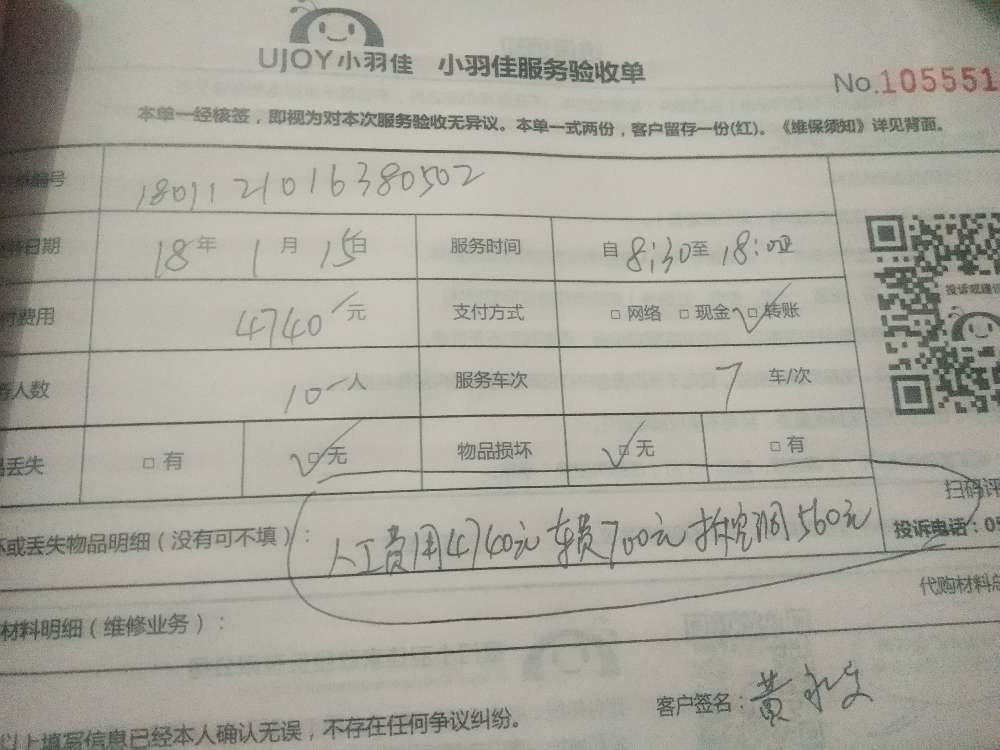 UJOY小羽佳 小羽佳服务验收单
No.105551
本单一经核签，即视为对本次服务验收无异议。本单一式两份，客户留存一份(红)。《维保须知》详见背面。
编号 1801121016380502
日期 18年1月15日 服务时间 自8:30至18:00
费用 4740元 支付方式 □网络 □现金 □转账
人数 10人 服务车次 7车/次
丢失 □有 □无 物品损坏 □无 □有
扫码评
坏或丢失物品明细（没有可不填）： 人工费用4740元 车费700元 560元
投诉电话：0
代购材料总
材料明细（维修业务）：
客户签名：黄永文
以上填写信息已经本人确认无误，不存在任何争议纠纷。